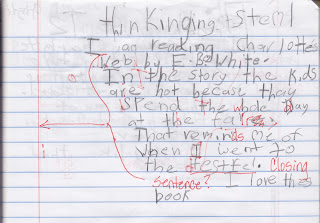 thinkinging stem!
I am reading Charlottes
Web by E. B. White.
In the story the kids
are hot becase thay
spend the whole day
at the fair.
That reminds me of
when I went to
the
Closing
sentence? I love thes
book